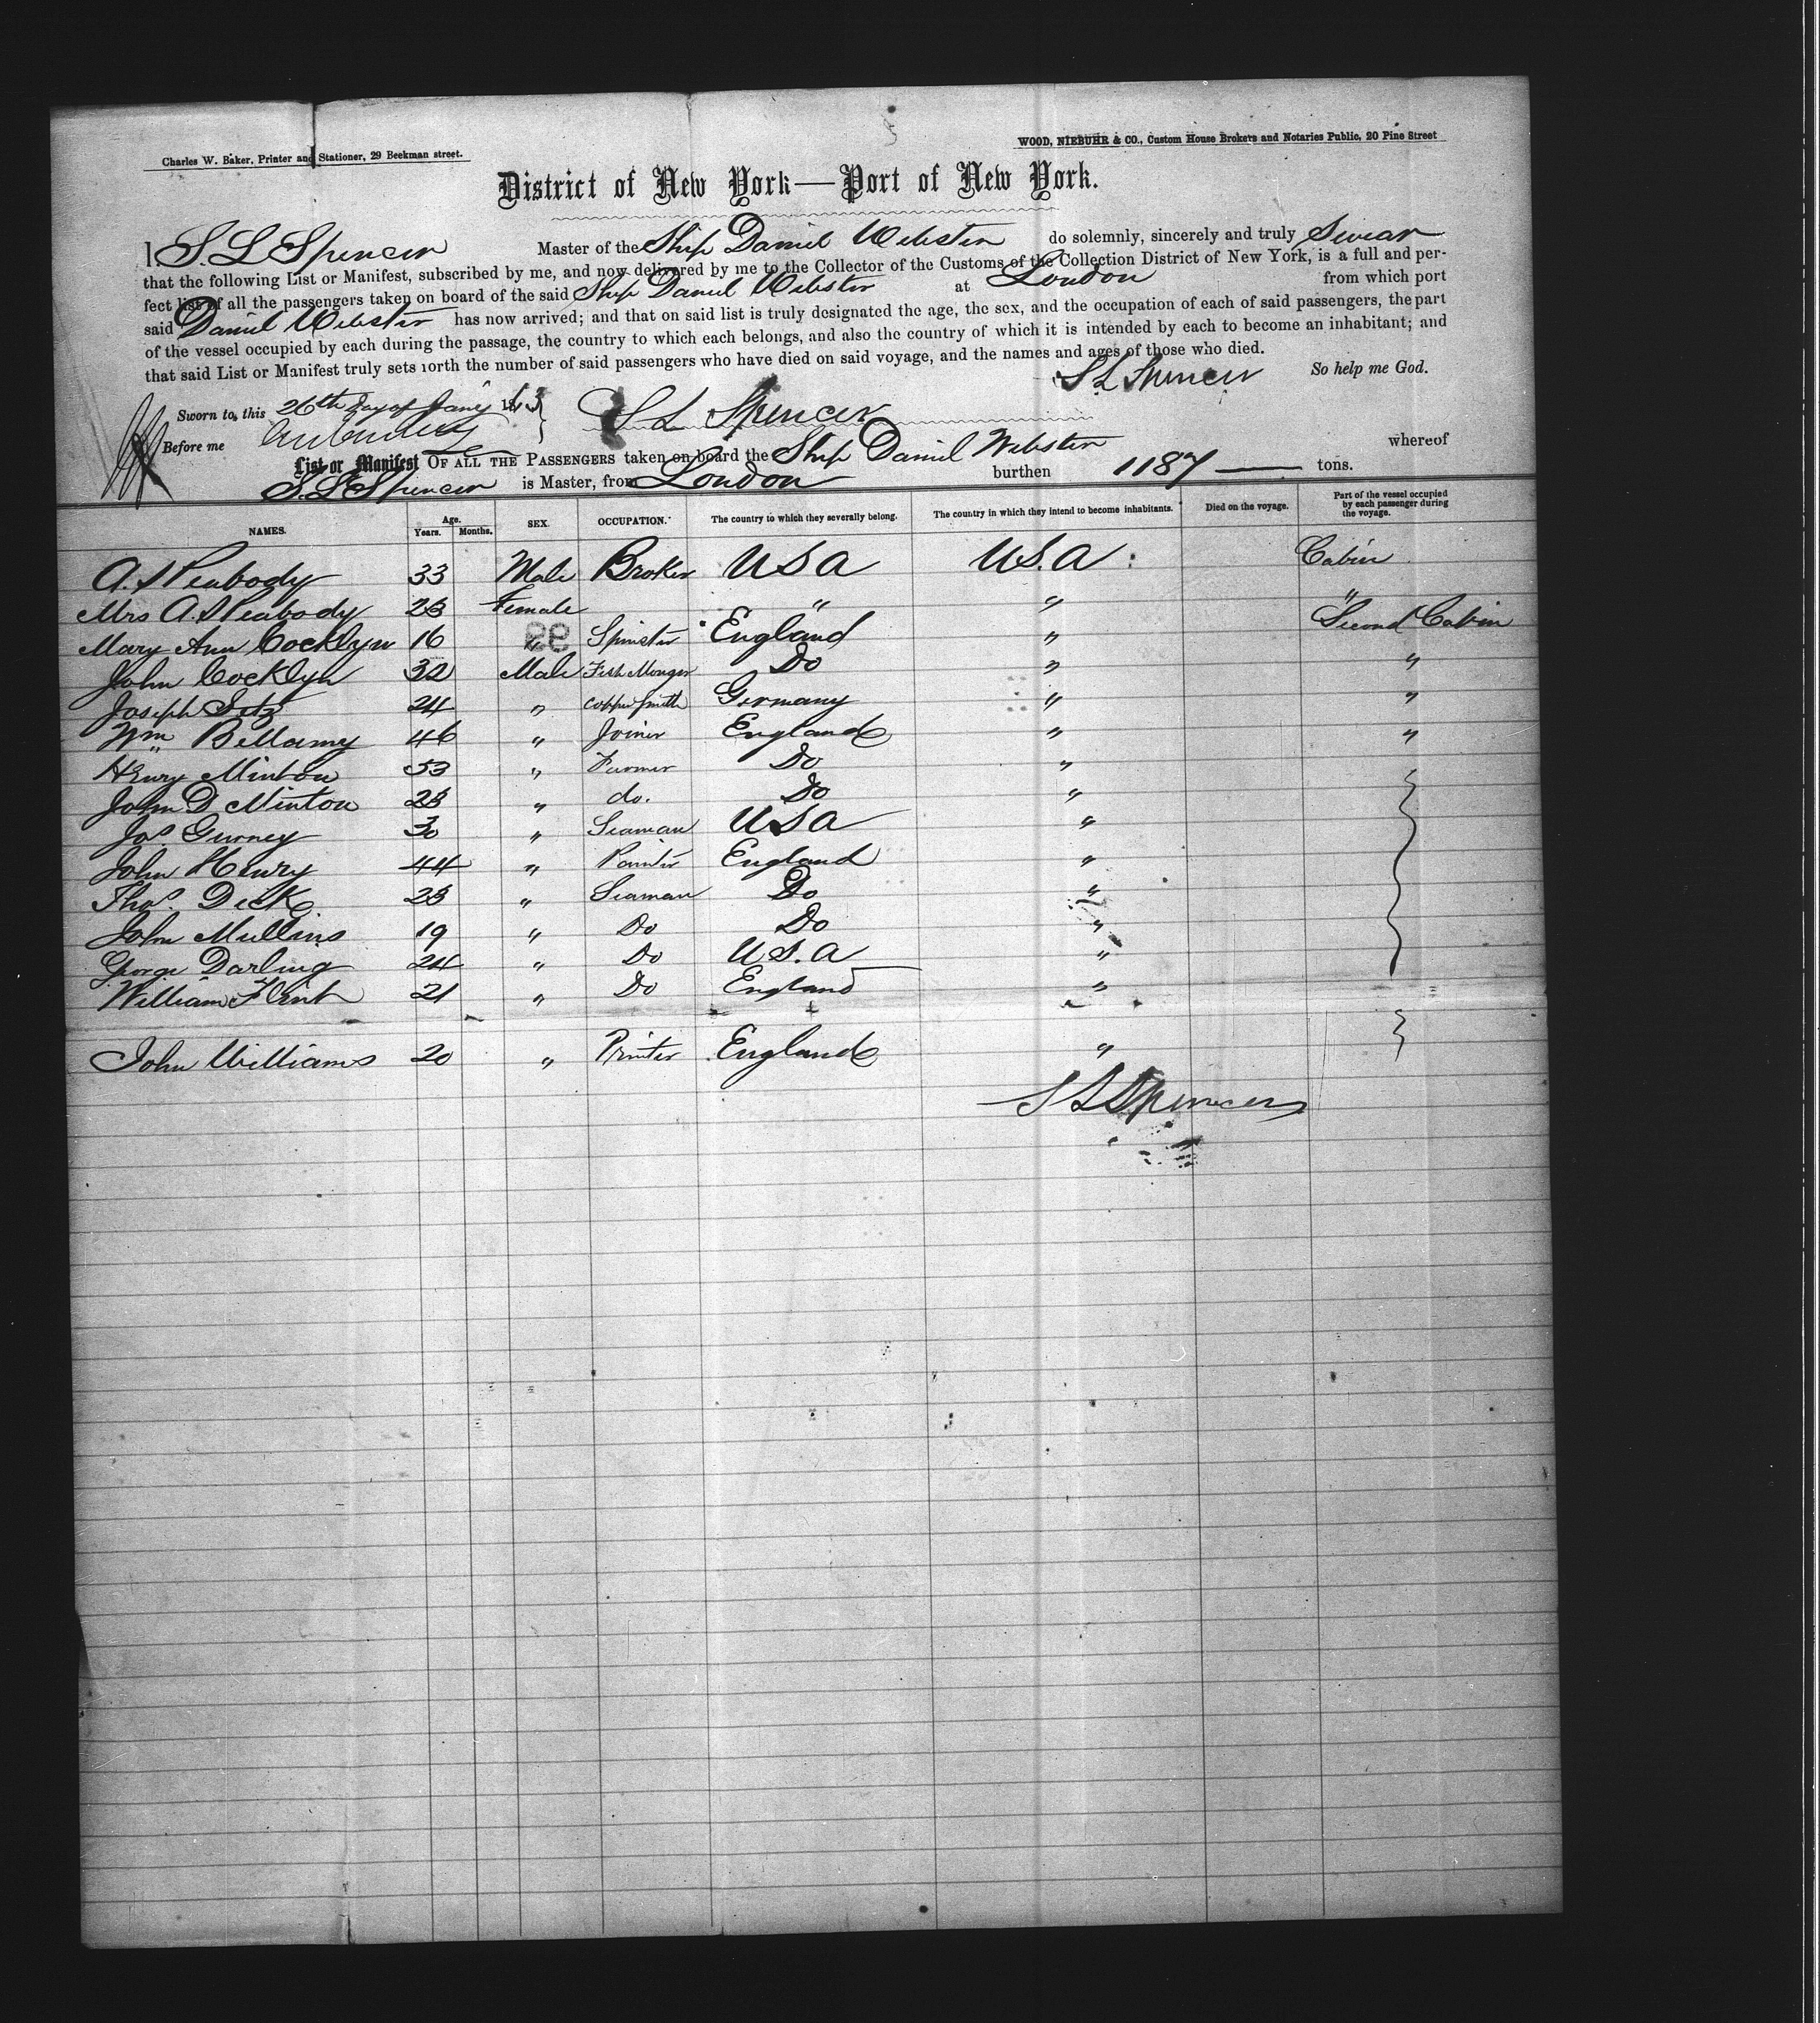 Charles W. Baker, Printer and Stationer, 29 Beekman street.
WOOD, NIEBUHR & CO., Custom House Brokers and Notaries Public, 20 Pine Street
District of New York—Port of New York.
I, S. L Spencer Master of the Ship Daniel Webster do solemnly, sincerely and truly Swear
that the following List or Manifest, subscribed by me, and now delivered by me to the Collector of the Customs of the Collection District of New York, is a full and per-
fect list of all the passengers taken on board of the said Ship Daniel Webster at London from which port
said Daniel Webster has now arrived; and that on said list is truly designated the age, the sex, and the occupation of each of said passengers, the part
of the vessel occupied by each during the passage, the country to which each belongs, and also the country of which it is intended by each to become an inhabitant; and
that said List or Manifest truly sets forth the number of said passengers who have died on said voyage, and the names and ages of those who died.
S L Spencer So help me God.
Sworn to, this 26th Day of Jany 18 3 S L Spencer
Before me
List or Manifest OF ALL THE PASSENGERS taken on board the Ship Daniel Webster whereof
S. L Spencer is Master, from London burthen 1187 tons.
NAMES. Age. Years. Months. SEX. OCCUPATION. The country to which they severally belong. The country in which they intend to become inhabitants. Died on the voyage. Part of the vessel occupied by each passenger during the voyage.
A. S Peabody 33 Male Broker USA U.S.A Cabin
Mrs A. S Peabody 23 Female " " "
Mary Ann Cocklyn 16 " Spinster England " Second Cabin
John Cocklyn 32 Male Fish Monger Do " "
Joseph 24 " Copper Smith Germany " "
Wm Bellamy 46 " Joiner England " "
Henry Minton 53 " Farmer Do "
John D Minton 23 " do. Do "
Jos Gurney 30 " Seaman USA "
John Henry 44 " Painter England "
Thos. Dick 23 " Seaman Do "
John Mullins 19 " Do Do "
George Darling 24 " Do U.S.A "
William Flint 21 " Do England "
John Williams 20 " Printer England "
S L Spencer